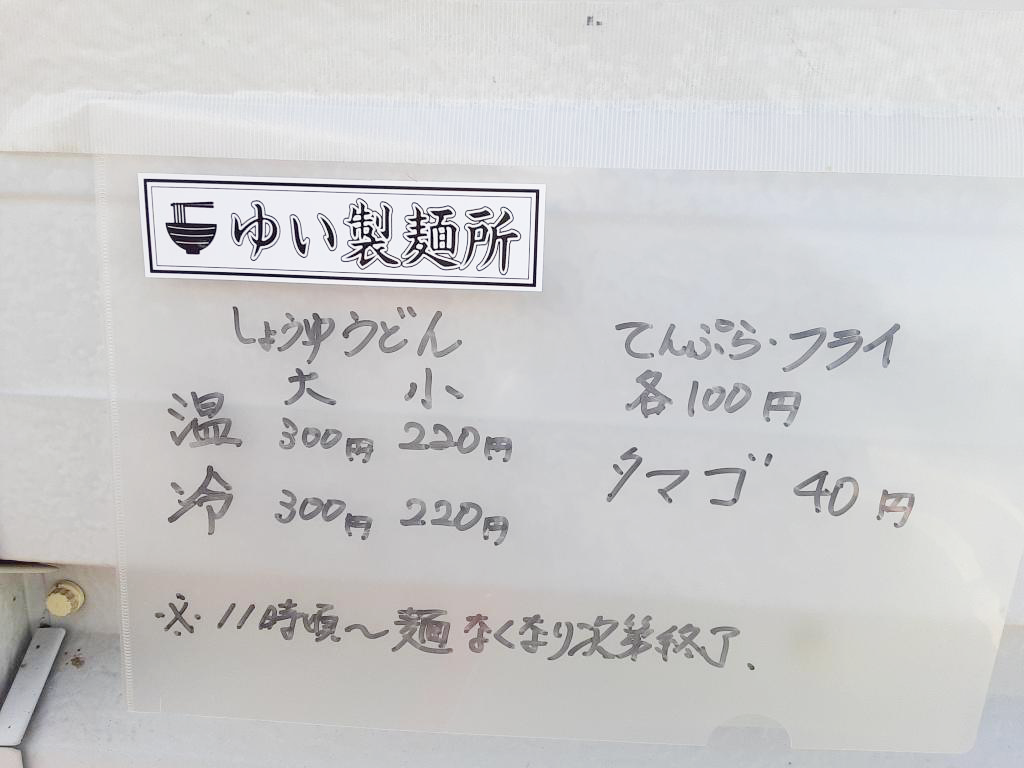 ゆい製麺所
しょうゆうどん
大 小
温 300円 220円
冷 300円 220円
てんぷら・フライ
各100円
タマゴ 40円
※11時頃～麺なくなり次第終了.